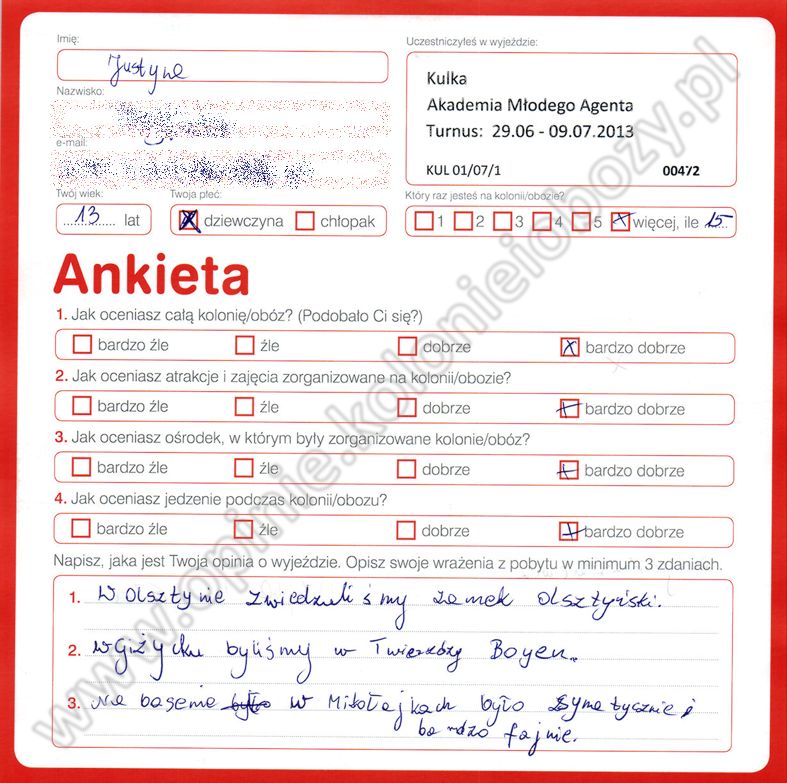 Imię:
Justyna
Uczestniczyłeś w wyjeździe:
Kulka
Akademia Młodego Agenta
Turnus: 29.06 - 09.07.2013
KUL 01/07/1 00472
Nazwisko:
e-mail:
Twój wiek:
13 lat
Twoja płeć:
dziewczyna chłopak
Który raz jesteś na kolonii/obozie?
1 2 3 4 5 więcej, ile 15
Ankieta
1. Jak oceniasz całą kolonię/obóz? (Podobało Ci się?)
bardzo źle źle dobrze bardzo dobrze
2. Jak oceniasz atrakcje i zajęcia zorganizowane na kolonii/obozie?
bardzo źle źle dobrze bardzo dobrze
3. Jak oceniasz ośrodek, w którym były zorganizowane kolonie/obóz?
bardzo źle źle dobrze bardzo dobrze
4. Jak oceniasz jedzenie podczas kolonii/obozu?
bardzo źle źle dobrze bardzo dobrze
Napisz, jaka jest Twoja opinia o wyjeździe. Opisz swoje wrażenia z pobytu w minimum 3 zdaniach.
1. W Olsztynie zwiedzaliśmy zamek olsztyński.
2. W Giżycku byliśmy w Twierdzy Boyen.
3. Na basenie było w Mikołajkach było symatycznie i
bardzo fajnie.
www.opinie.kolonieiobozy.pl